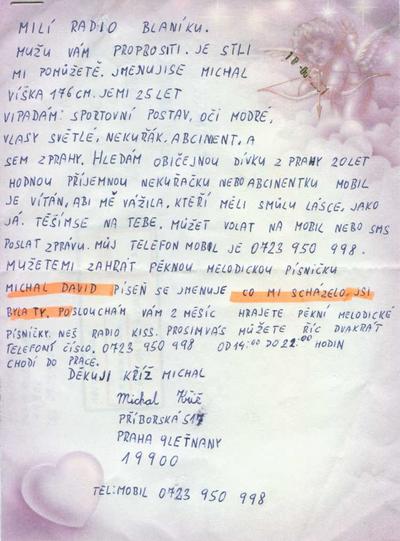 MILÍ RADIO BLANÍKU.
MUŽU VÁM PROPBOSITI. JE STLI
MI POMŮŽETĚ. JMENUJISE MICHAL
VÍŠKA 176 CM. JEMI 25 LET
VIPADÁM: SPORTOVNÍ POSTAV, OČÍ MODRÉ,
VLASY SVĚTLÉ, NEKUŘÁK. ABCINENT, A
SEM Z PRAHY. HLEDÁM OBIČEJNOU DÍVKU Z PRAHY 20 LET
HODNOU PŘÍJEMNOU NEKUŘAČKU NEBO ABCINENTKU MOBIL
JE VÍTÁN, ABI MĚ VÁŽILA, KTEŘÍ MĚLI SMŮLU LÁSCE, JAKO
JÁ. TĚŠÍMSE NA TEBE. MŮŽET VOLAT NA MOBIL NEBO SMS
POSLAT ZPRÁVU. MŮJ TELEFÓN MOBIL JE 0723 950 998.
MUŽETEMI ZAHRÁT PĚKNOU MELODICKOU PÍSNIČKU
MICHAL DAVID PÍSEŇ SE JMENUJE CO MI SCHÁZELO, JSI
BYLA TY. POSLOUCHÁM VÁM 2 MĚSÍC HRAJETE PĚKNÍ MELODICKÉ
PÍSNIČKY. NEŠ RADIO KISS. PROSIMVÁS MŮŽETE ŘÍC DVAKRÁT
TELEFONÍ ČÍSLO. 0723 950 998 OD 14:00 DO 22:00 HODIN
CHODÍ DO PRÁCE.
DĚKUJI KŘÍŽ MICHAL
Michal Kříž
PŘÍBORSKÁ 517
PRAHA 9 LEŤNANY
19900
TEL:MOBIL 0723 950 998